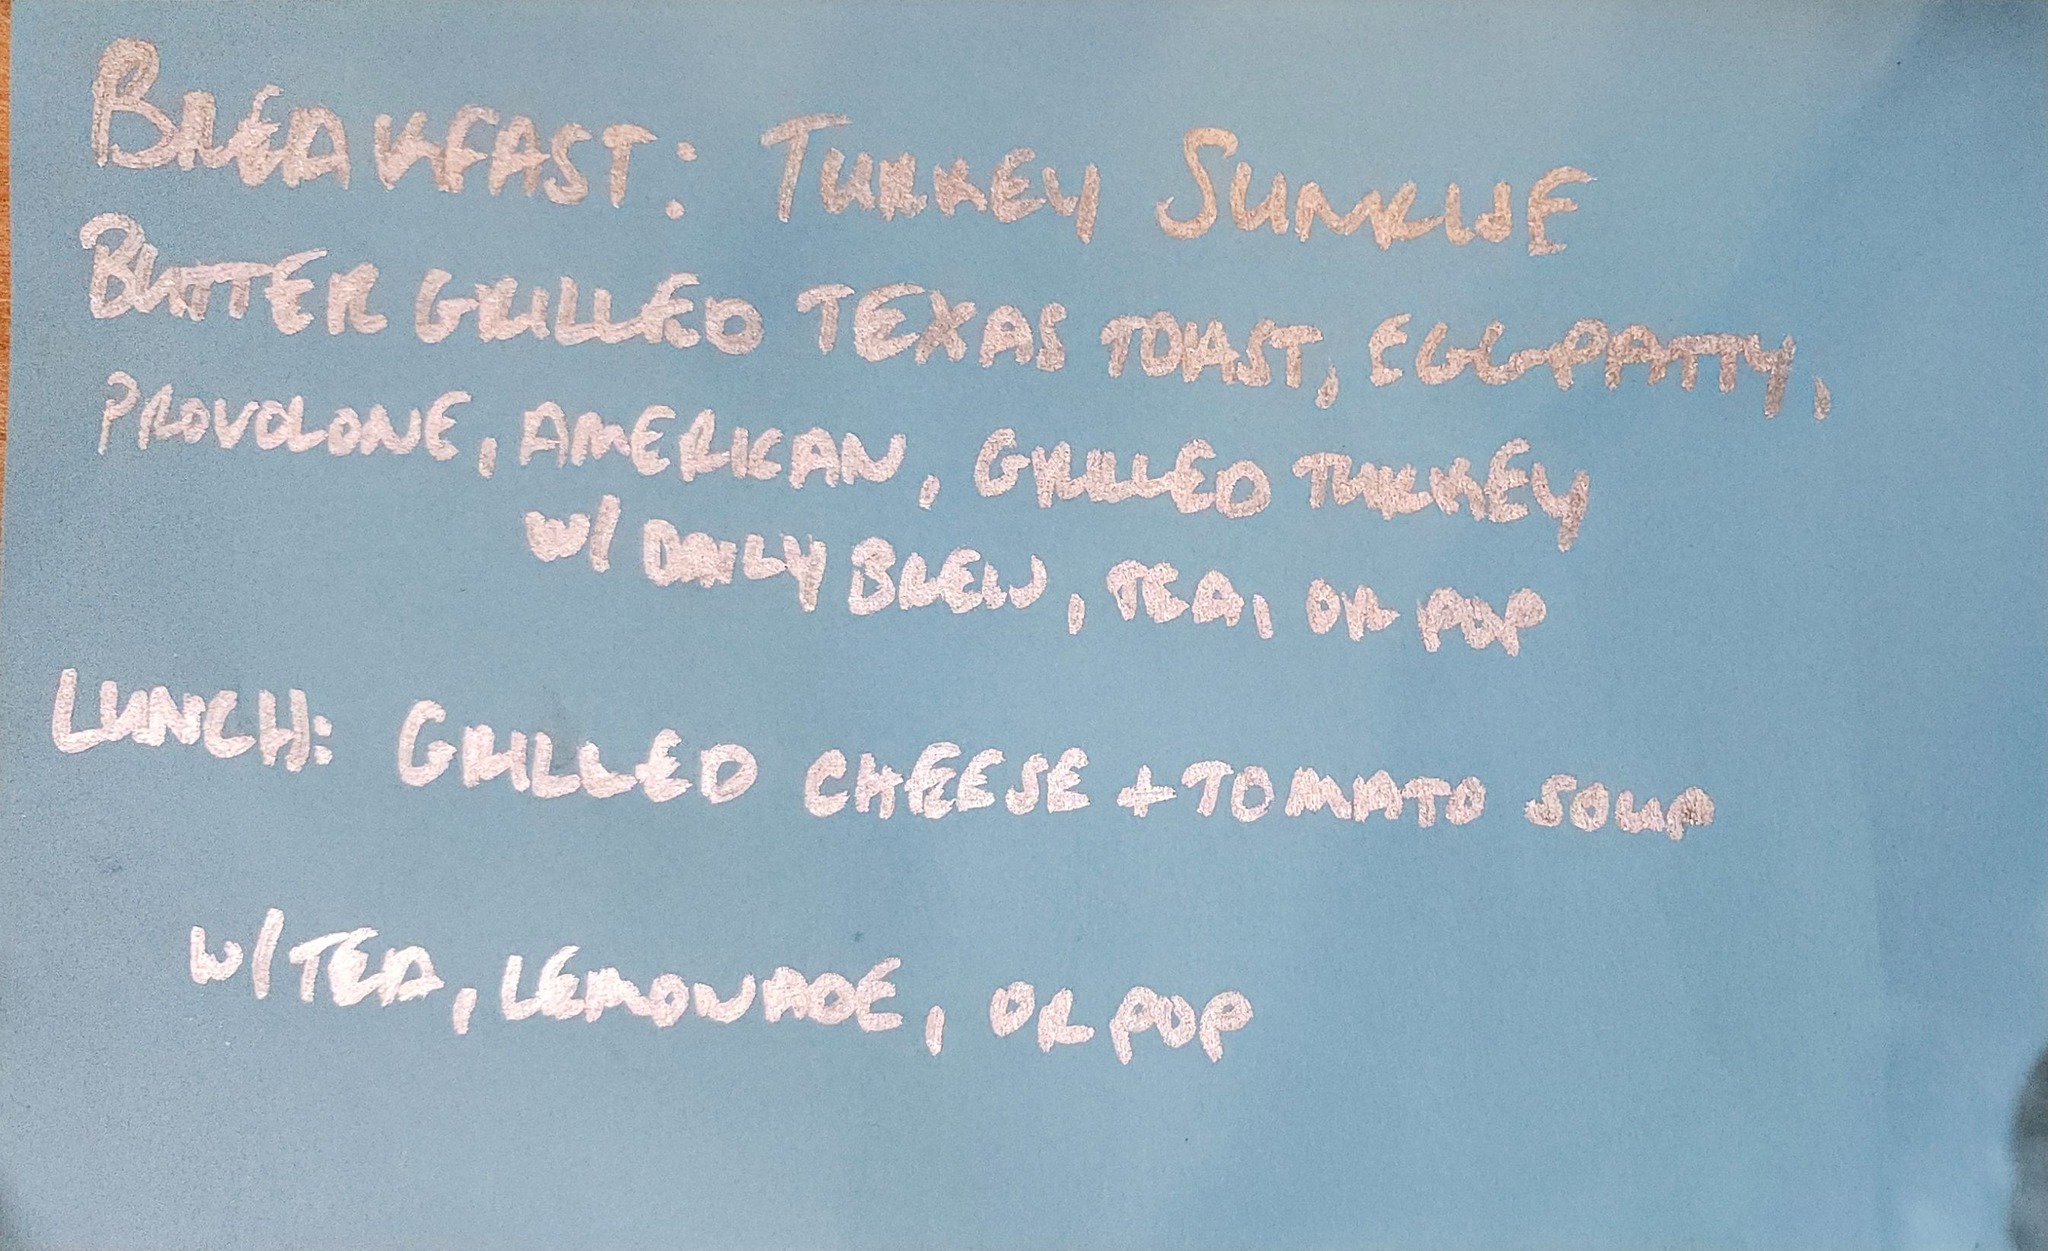 BREAKFAST: TURKEY SUNRISE
BUTTER GRILLED TEXAS TOAST, EGG PATTY,
PROVOLONE, AMERICAN, GRILLED TURKEY
W/ DAILY BREW, TEA, OR POP
LUNCH: GRILLED CHEESE + TOMATO SOUP
W/ TEA, LEMONADE, OR POP